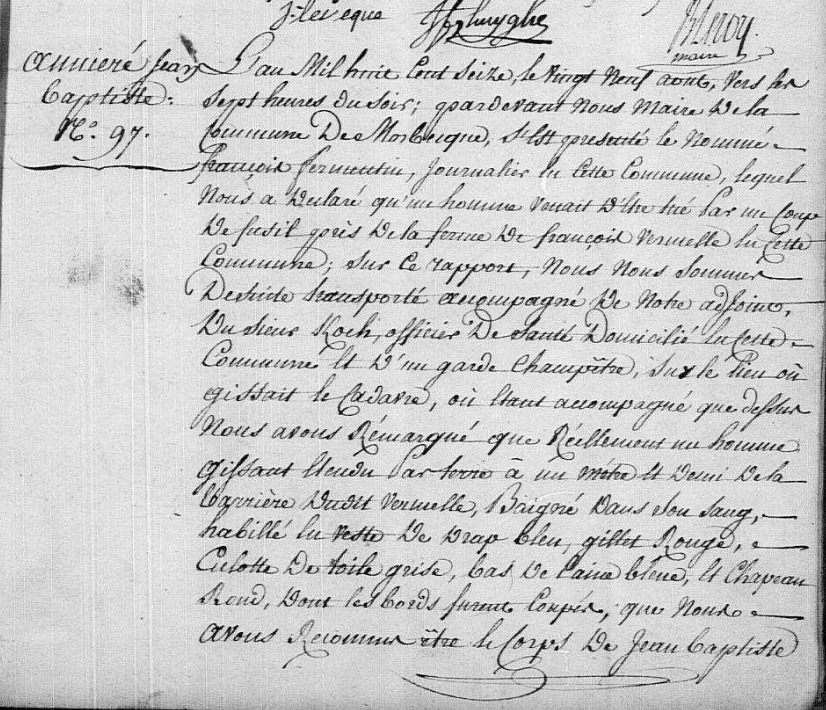 J. Lévêque
maire
Annieré Jean
Baptiste.
N.º 97.
L'an Mil huit Cent Seize, le vingt Neuf aout, vers les
Sept heures du Soir; pardevant Nous Maire de la
Commune De Morbecque, S'est présenté le Nommé
françois fermentin, Journalier en Cette Commune, lequel
Nous a declaré qu'un homme venait d'Etre tué Par un Coup
De fusil près de la ferme De françois Vermelle en Cette
Commune; Sur Ce rapport, Nous Nous Sommes
De suite transporté accompagné De Notre adjoint,
Du Sieur Koch, officier De Santé Domicilié en Cette
Commune Et D'un garde Champêtre, Sur le lieu où
gissait le Cadavre, où Etant accompagné que dessus
Nous avons Rémarqué que Réellement un homme
gissant Etendu Par terre à un metre Et Demi De la
Barrière Dudit Vermelle, Baigné Dans Son Sang,
habillé En veste De Drap bleu, gillet Rouge,
Culotte De toile grise, bas De laine bleue, Et Chapeau
Rond, Dont les bords furent Coupés, que Nous
avons Reconnu être le Corps De Jean Baptiste